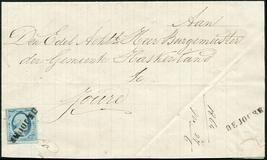 Aan
Den Edel Achtb Heer Burgemeester
der Gemeente Haskerland
te
Joure
DE JOURE